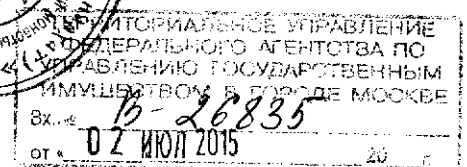 ТЕРРИТОРИАЛЬНОЕ УПРАВЛЕНИЕ
ФЕДЕРАЛЬНОГО АГЕНТСТВА ПО
УПРАВЛЕНИЮ ГОСУДАРСТВЕННЫМ
ИМУЩЕСТВОМ В ГОРОДЕ МОСКВЕ
Вх. № 15-26835
от « 02 ИЮЛ 2015 20 г.